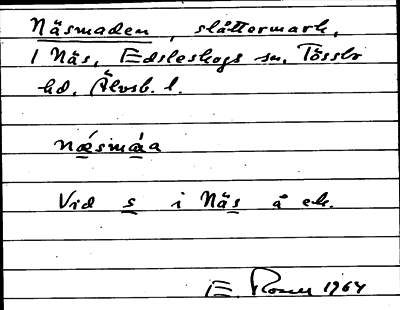 Näsmaden, slåttermark,
I Näs, Edsleskogs sn, Tössbo
hd, Älvsb. l.
næ´smá̱a
Vid s i Näs å ek.
E. Rosell 1964